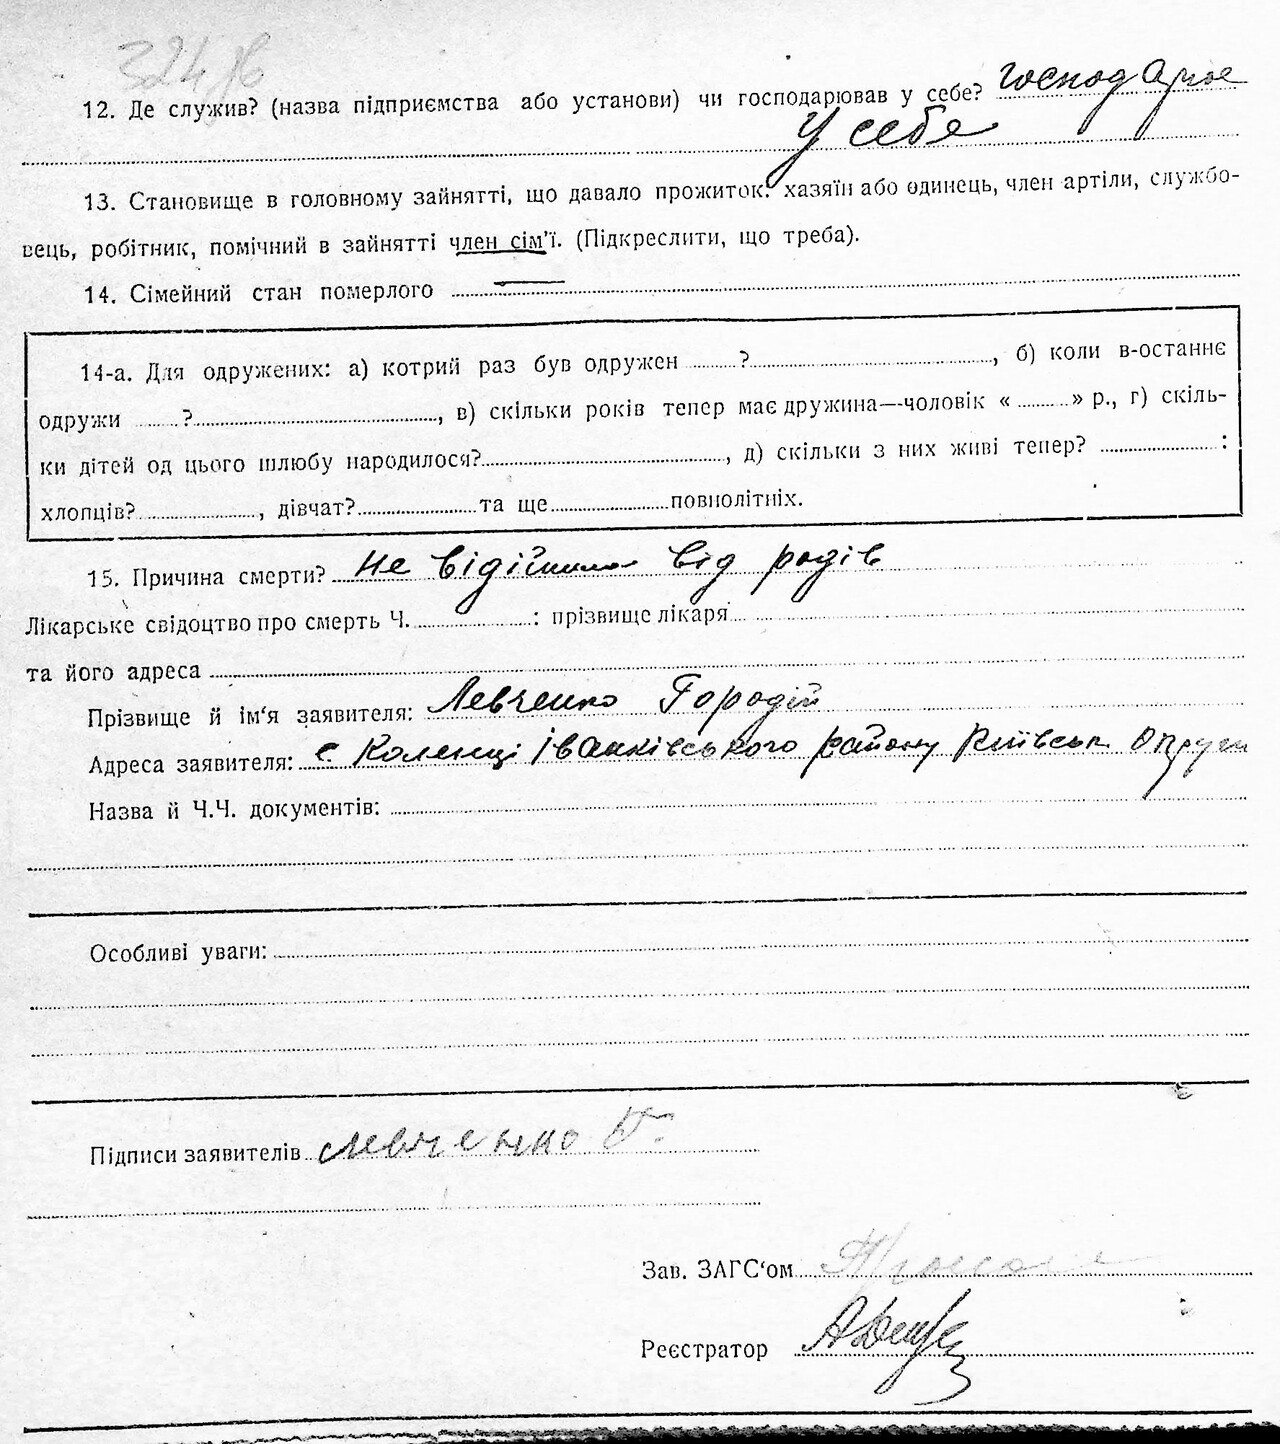 324
12. Де служив? (назва підприємства або установи) чи господарював у себе? господарює
у себе
13. Становище в головному зайнятті, що давало прожиток: хазяїн або одинець, член артіли, службо-
вець, робітник, помічний в зайнятті член сім'ї. (Підкреслити, що треба).
14. Сімейний стан померлого —
14-а. Для одружених: а) котрий раз був одружен ?, б) коли в-останнє
одружи ?, в) скільки років тепер має дружина—чоловік « » р., г) скіль-
ки дітей од цього шлюбу народилося?, д) скільки з них живі тепер? :
хлопців?, дівчат? та ще повнолітніх.
15. Причина смерти? Не відійшла від родів
Лікарське свідоцтво про смерть Ч. : прізвище лікаря
та його адреса
Прізвище й ім'я заявителя: Левченко Гордій
Адреса заявителя: с. Коленці Іванківського району Київськ. Округи
Назва й Ч.Ч. документів:
Особливі уваги:
Підписи заявителів Левченко Г.
Зав. ЗАГС'ом
Реєстратор